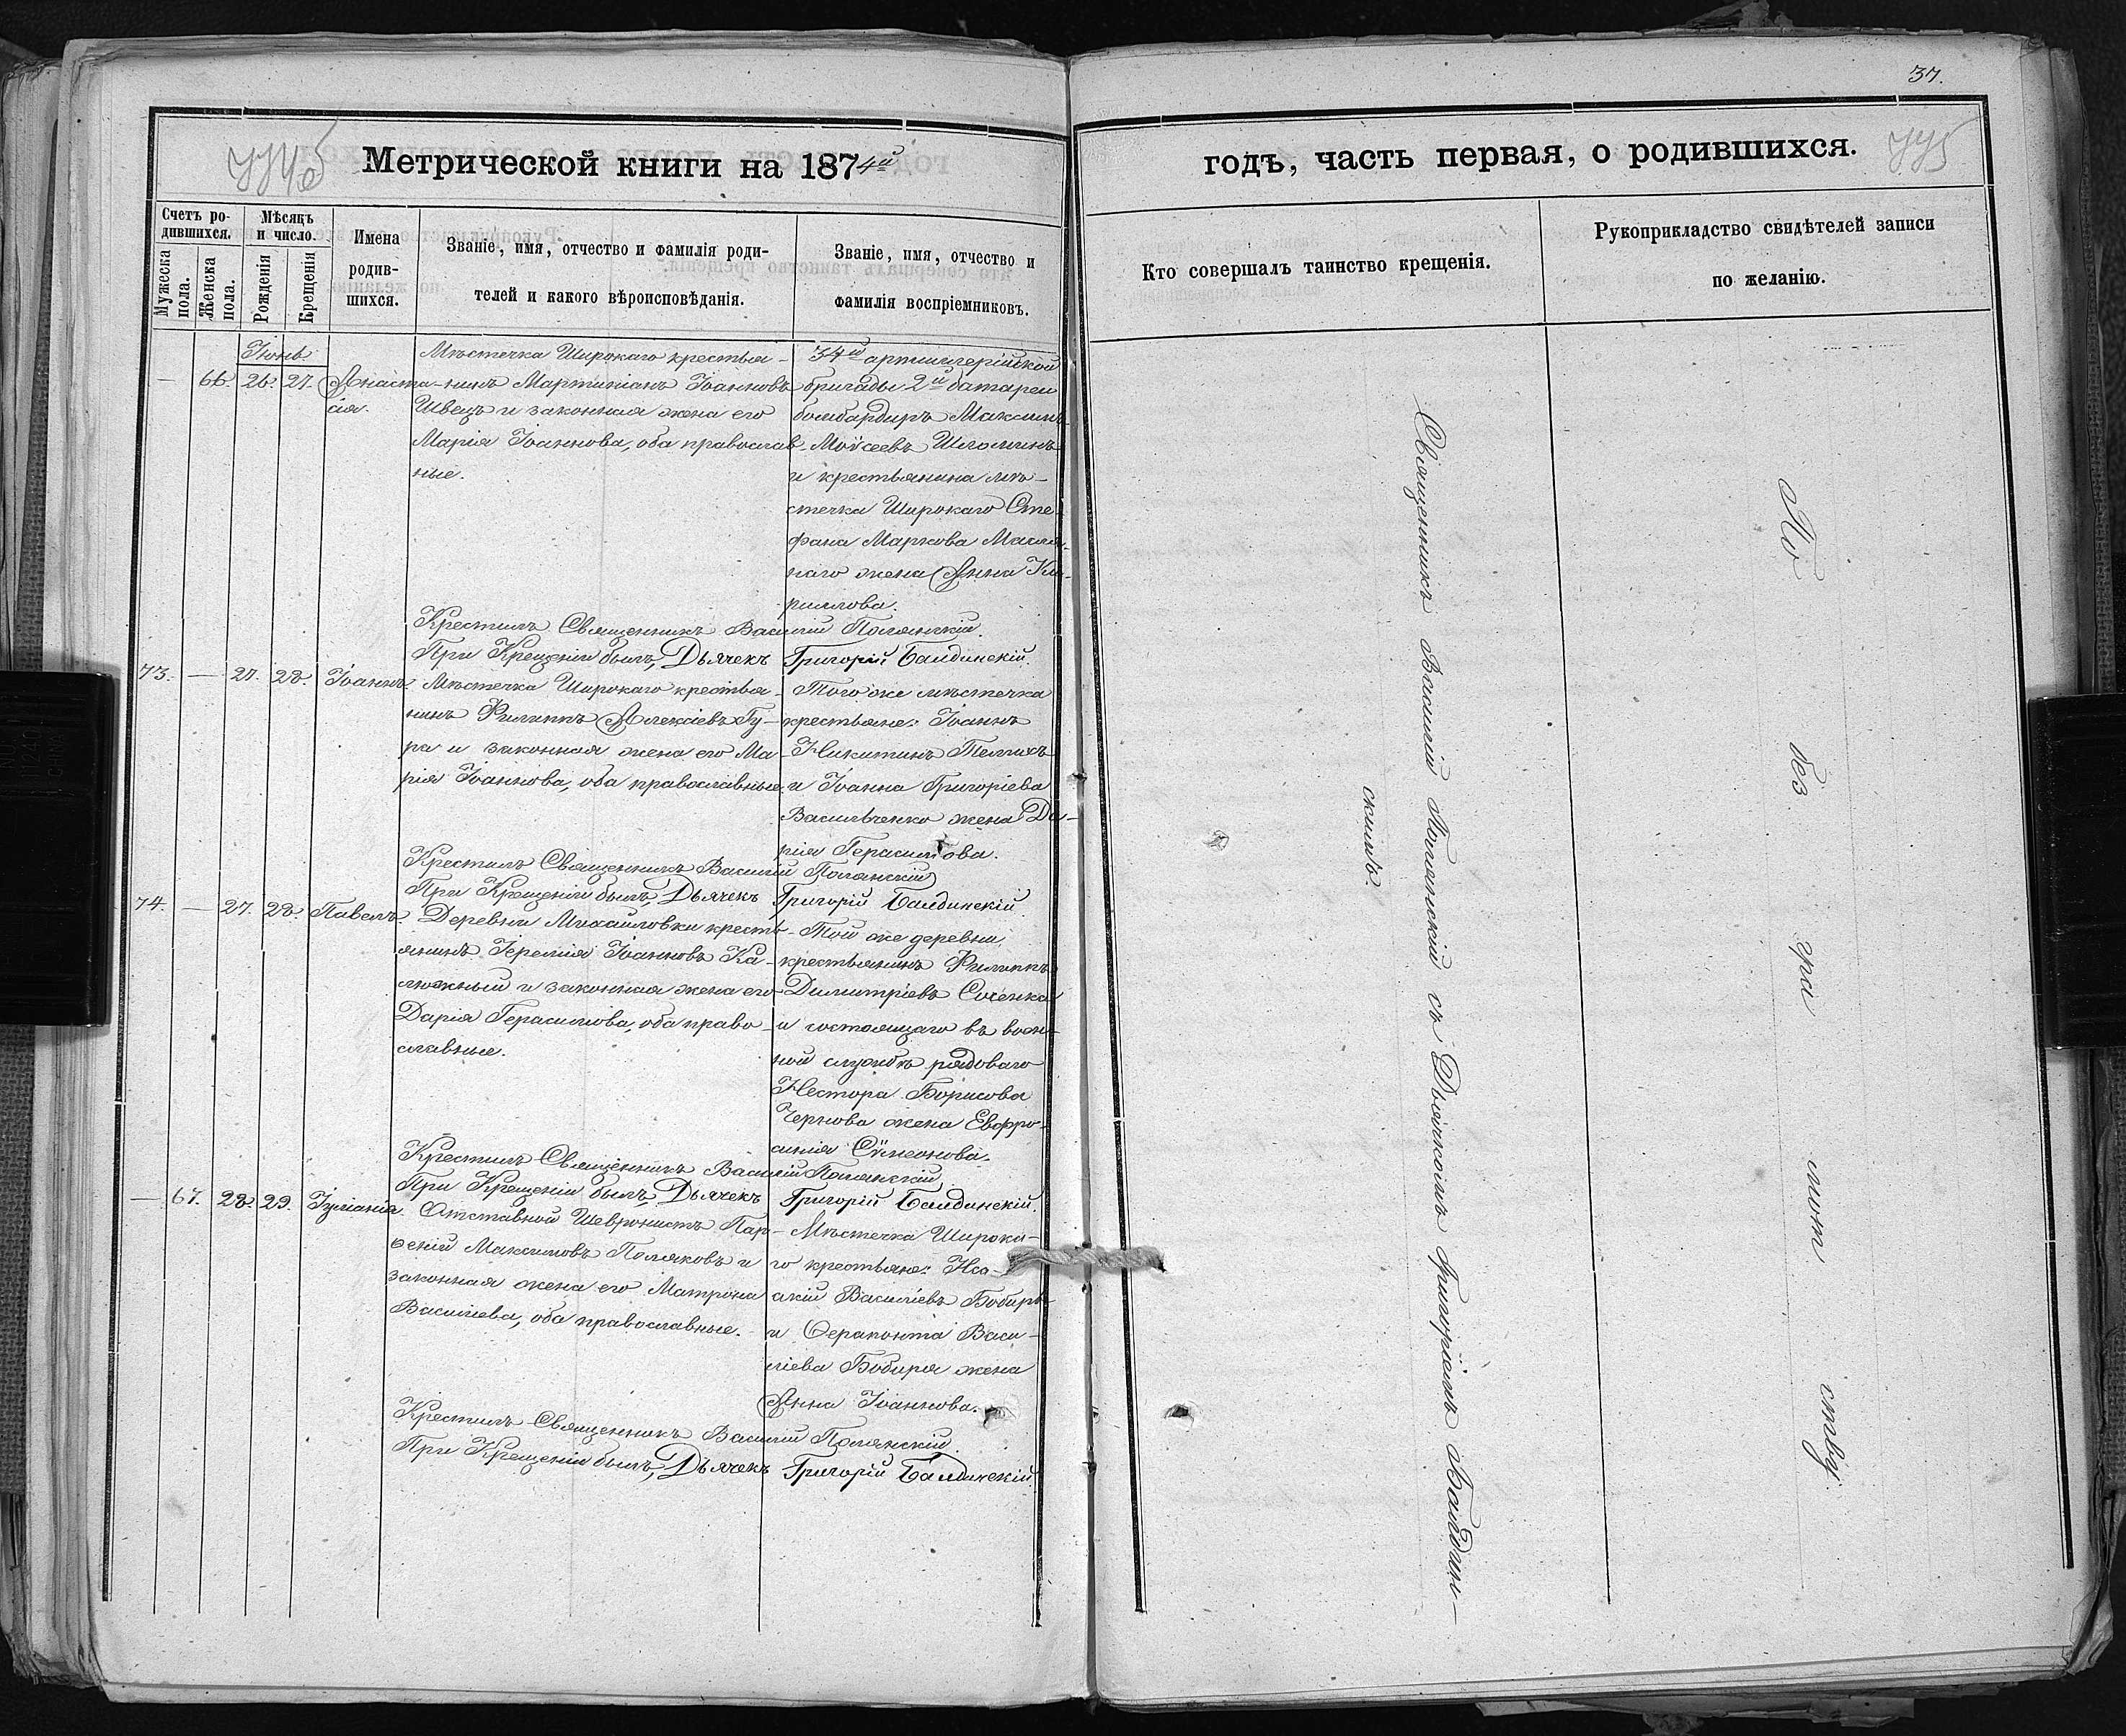 37.
Метрической книги на 1874й
годъ, часть первая, о родившихся.
775
Счетъ ро-
дившихся.
Мужеска пола.
Женска пола.
Мѣсяцъ
и число.
Рожденія
Крещенія
Имена
родив-
шихся.
Званіе, имя, отчество и фамилія роди-
телей и какого вѣроисповѣданія.
Званіе, имя, отчество и
фамилія воспріемниковъ.
Кто совершалъ таинство крещенія.
Рукоприкладство свидѣтелей записи
по желанію.
Іюнь
— 66. 26. 27. Анаста-
сія.
Мѣстечка Широкаго крестья-
нинъ Мартиніанъ Іоанновъ
Швецъ и законная жена его
Марія Іоаннова, оба православ-
ные.
34й артиллерійской
бригады 2й батареи
бомбардиръ Максимъ
Моѵсеевъ
и крестьянина мѣ-
стечка Широкаго Сте-
фана Маркова
жена Анна Ки-
риллова.
Крестилъ Священникъ Василій Полянскій.
При Крещеніи былъ, Дьячекъ Григорій Балдинскій.
73. — 27. 28. Іоаннъ.
Мѣстечка Широкаго крестья-
нинъ Филиппъ Алексіевъ Гу-
ра и законная жена его Ма-
рія Іоаннова, оба православные
Того же мѣстечка
крестьяне: Іоаннъ
Никитинъ
и Іоанна Григоріева
Васильченко жена Да-
рія Герасимова.
Крестилъ Священникъ Василій Полянскій
При Крещеніи былъ, Дьячекъ Григорій Балдинскій.
74. — 27. 28. Павелъ.
Деревни Михайловки кресть-
янинъ Іеремія Іоанновъ Ка-
люжный и законная жена его
Дарія Герасимова, оба право-
славные.
Той же деревни
крестьянинъ Филиппъ
Димитріевъ Соченко
и состоящаго въ воен-
ной службѣ рядоваго
Нестора Борисова
Чернова жена Евфро-
синія Сѵмеонова.
Крестилъ Священникъ Василій Полянскій
При Крещеніи былъ, Дьячекъ Григорій Балдинскій.
— 67. 28. 29. Іуліанія.
Отставной Шевронистъ Пар-
ѳеній Максимовъ Поляковъ и
законная жена его Матрона
Василіева, оба православные.
Мѣстечка Широка-
го крестьяне: Иса-
акій Василіевъ Бобирь
и Ѳерапонта Васи-
ліева Бобиря жена
Анна Іоаннова.
Крестилъ Священникъ Василій Полянскій.
При Крещеніи былъ, Дьячекъ Григорій Балдинскій.
Священникъ Василій Полянскій съ Дьячкомъ Григоріемъ Балдин-
скимъ.
По без гра мот ству.